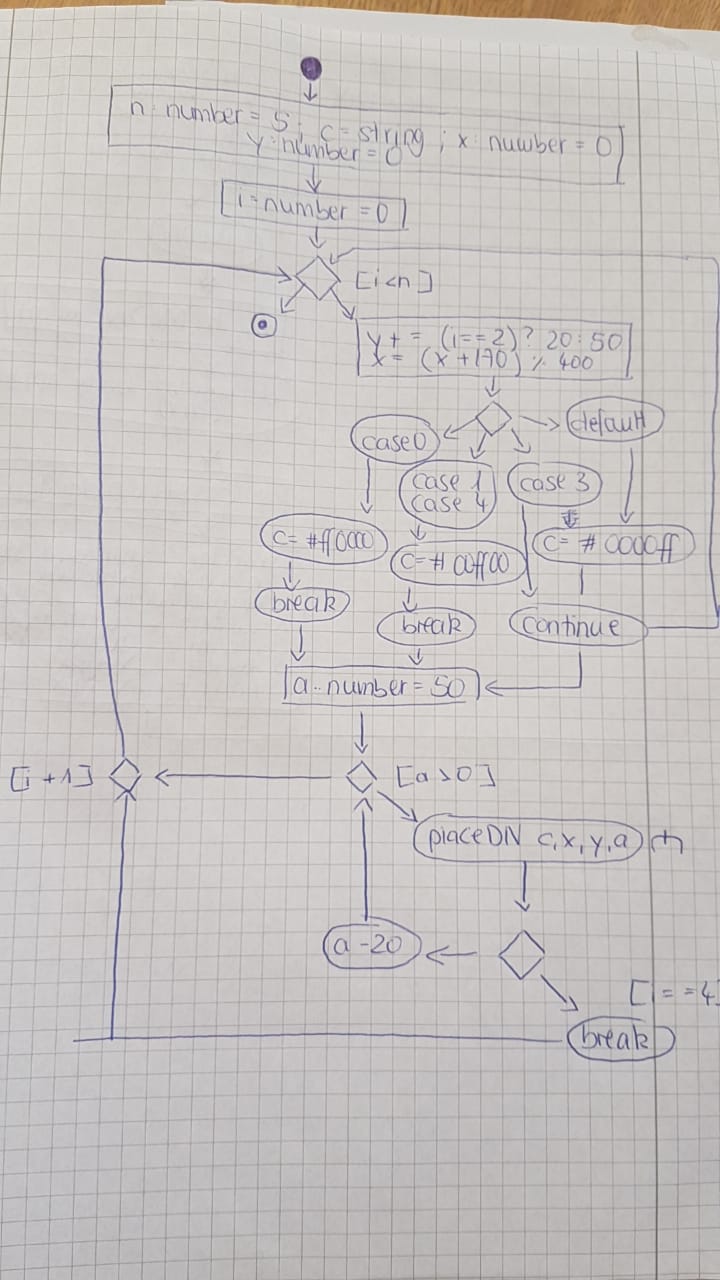 n: number = 5; c = string; x: number = 0
y: number = 0
i: number = 0
[i<n]
y += (i==2)? 20:50
x = (x+170) % 400
case 0
default
case 1
case 4
case 3
c= #ff0000
c= # 00ff00
c= # 0000ff
break
break
continue
a: number = 50
[i +1]
[a>0]
placeDN c,x,y,a
a -20
[i==4]
break